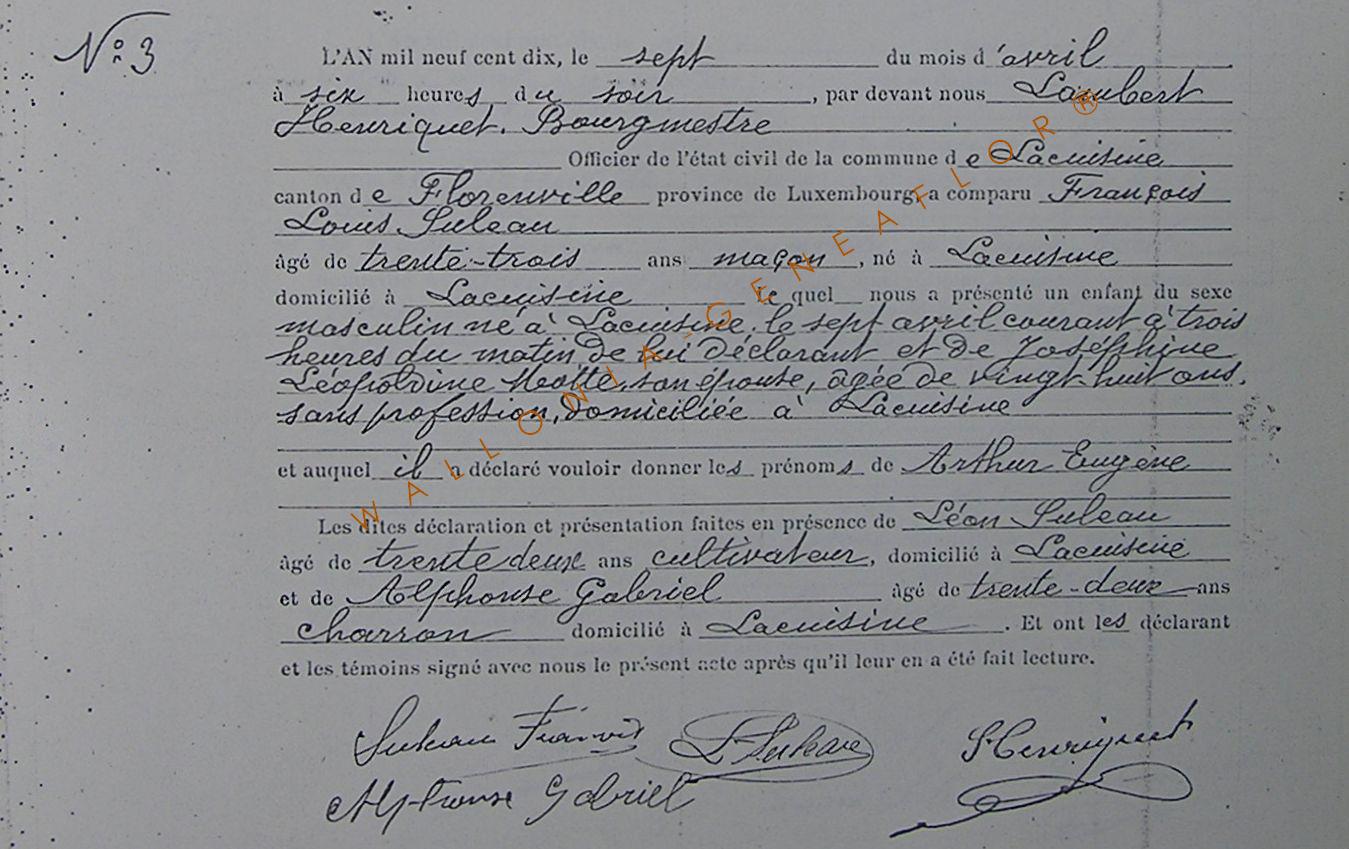 N° 3
L'AN mil neuf cent dix, le sept du mois d'avril
à six heures du soir, par devant nous Lambert
Henriquet, Bourgmestre
Officier de l'état civil de la commune de Lacuisine
canton de Florenville province de Luxembourg, a comparu François
Louis Suleau
âgé de trente-trois ans maçon, né à Lacuisine
domicilié à Lacuisine lequel nous a présenté un enfant du sexe
masculin né à Lacuisine, le sept avril courant à trois
heures du matin de lui déclarant et de Joséphine
Léopoldine son épouse, âgée de vingt-huit ans,
sans profession, domiciliée à Lacuisine
et auquel il a déclaré vouloir donner les prénoms de Arthur Eugène
Les dites déclaration et présentation faites en présence de Léon Suleau
âgé de trente deux ans cultivateur, domicilié à Lacuisine
et de Alphonse Gabriel âgé de trente-deux ans
charron domicilié à Lacuisine. Et ont les déclarant
et les témoins signé avec nous le présent acte après qu'il leur en a été fait lecture.
Suleau François L Suleau Henriquet
Alphonse Gabriel
WALLONIA-GENEAFLOR®